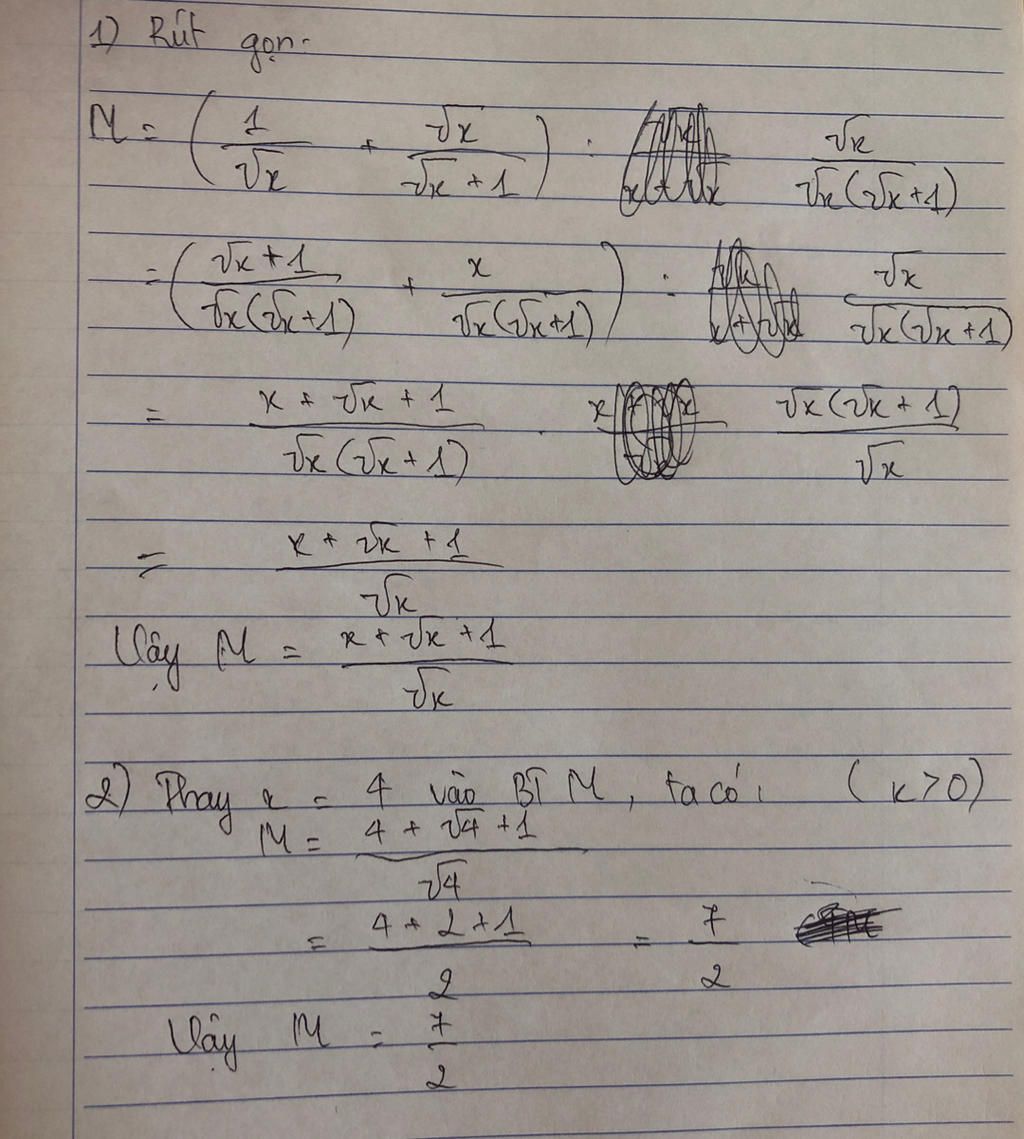 1) Rút gọn.
M = (1/√x + √x/(√x + 1)) : √x/(√x(√x+1))
= ((√x + 1)/(√x(√x+1)) + x/(√x(√x+1))) : √x/(√x(√x+1))
= (x + √x + 1)/(√x(√x+1)) . √x(√x+1)/√x
= (x + √x + 1)/√x
Vậy M = (x + √x + 1)/√x
2) Thay x = 4 vào BT M, ta có: (x>0)
M = (4 + √4 + 1)/√4
= (4 + 2 + 1)/2 = 7/2
Vậy M = 7/2